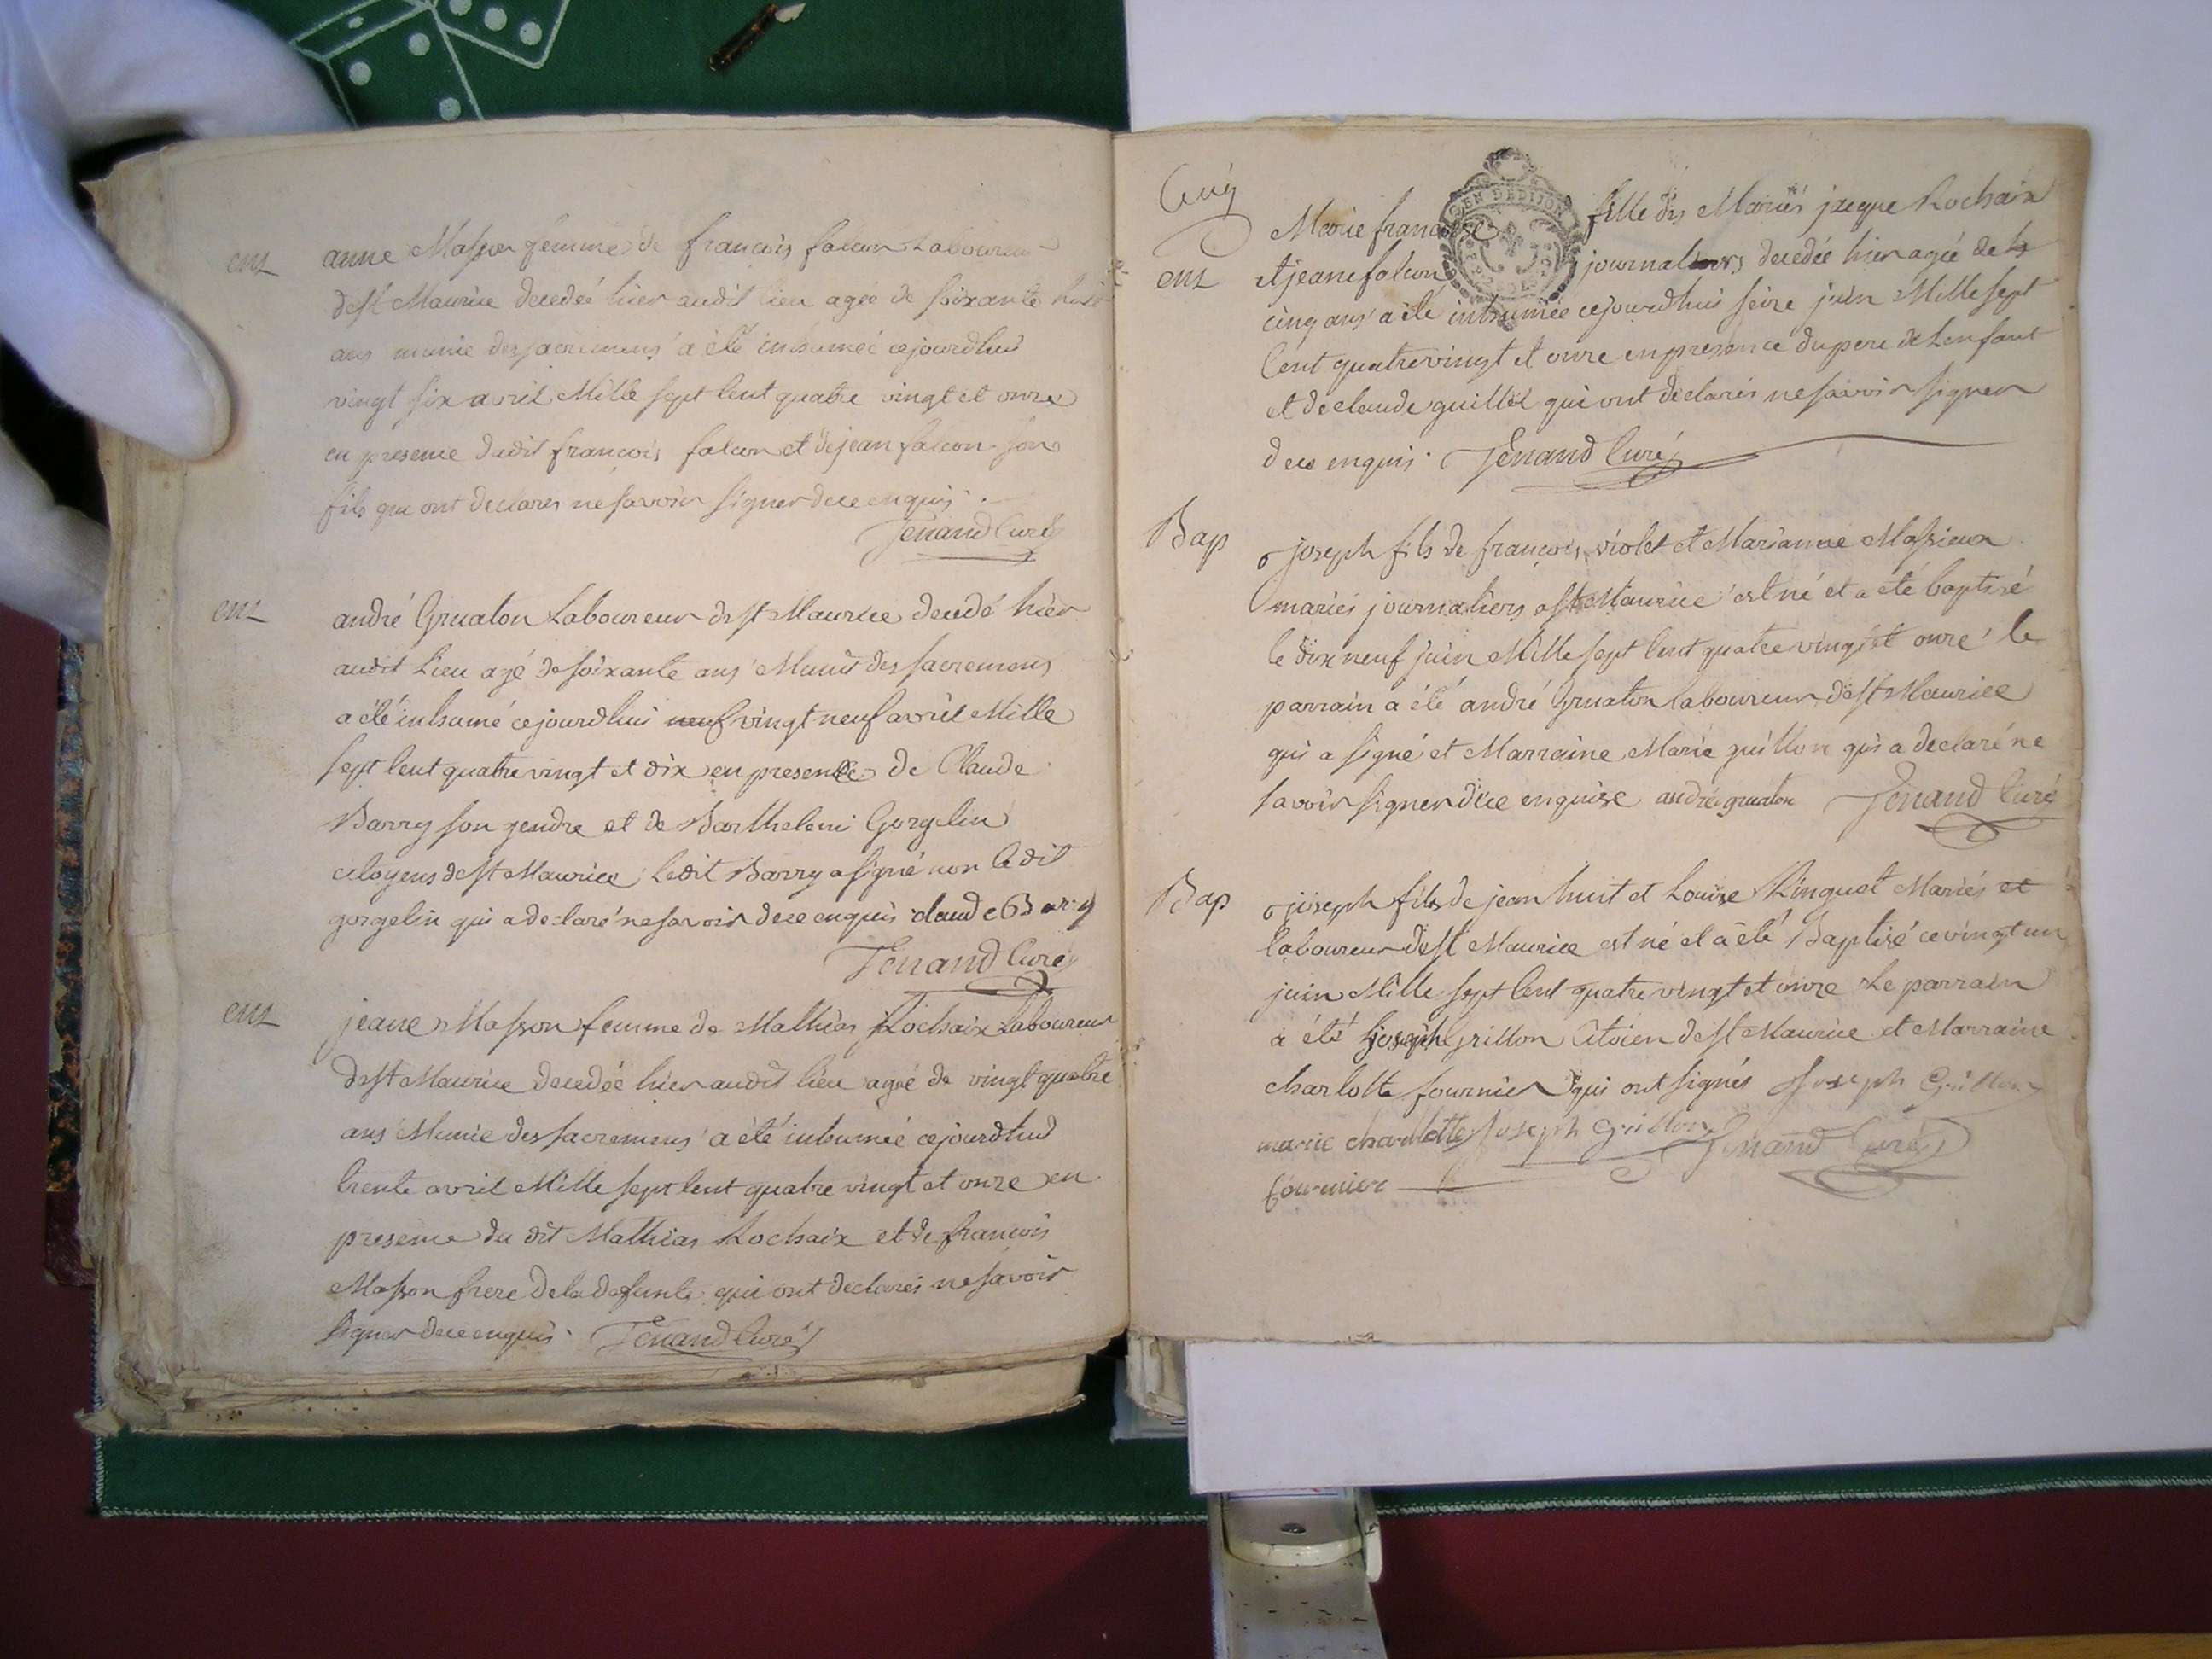 ent
anne Masson femme de françois falcon Laboureur
de st Maurice decedée hier audit lieu agée de soixante huit
ans munie des sacremens a été inhumée cejourdhui
vingt six avril Mille sept Cent quatre vingt et onze
en presence dudit françois falcon et de jean falcon son
fils qui ont declarés ne savoir signer de ce enquis.
Jenand Curé
ent
andré Gruaton Laboureur de st Maurice decedé hier
audit Lieu agé de soixante ans Munit des sacremens
a été inhumé cejourdhui neuf vingt neuf avril Mille
sept Cent quatre vingt et dix en presence de Claude
Barry son gendre et de Barthelemi Gorgelin
citoyens de st Maurice, Ledit Barry a signé non Le dit
gorgelin qui a declaré ne savoir de ce enquis claude Barry
Jenand Curé
ent
jeane Masson femme de Mathias Rochaix Laboureur
de st Maurice decedée hier audit lieu agée de vingt quatre
ans Munie des sacremens a été inhumée cejourdhui
trente avril Mille sept Cent quatre vingt et onze en
presence du dit Mathias Rochaix et de françois
Masson frere de la defunte qui ont declarés ne savoir
signer de ce enquis. Jenand Curé
Cinq
GEN DE DIJON
ent
Marie françoise fille des Mariés jacque Rochaix
et jeane falcon journaliers decedée hier agée de
cinq ans a été inhumée cejourdhui seize juin Mille sept
Cent quatre vingt et onze en presence du pere de Lenfant
et de claude guillot qui ont declarés ne savoir signer
de ce enquis. Jenand Curé
Bap
joseph fils de françois violet et Marianne Massieux
mariés journaliers a st Maurice est né et a été baptisé
le dix neuf juin Mille sept Cent quatre vingt et onze le
parrain a été andré Gruaton laboureur de st Maurice
qui a signé et Marraine Marie guillon qui a declaré ne
savoir signer de ce enquise andré gruaton Jenand Curé
Bap
joseph fils de jean huit et Louise Ringuet Mariés et
laboureur de st Maurice est né et a été Baptisé ce vingt un
juin Mille sept Cent quatre vingt et onze Le parrain
a été joseph Grillon Citoien de st Maurice et Marraine
charlotte fournier qui ont signés Joseph Grillon
marie charlotte Joseph Grillon Jenand Curé
fournier